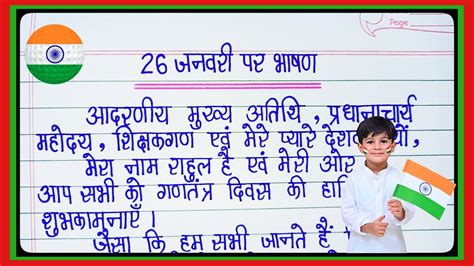 Page
26 जनवरी पर भाषण
आदरणीय मुख्य अतिथि, प्रधानाचार्य
महोदय, शिक्षकगण एवं मेरे प्यारे
मेरा नाम राहुल है एवं मेरी ओर
आप सभी को गणतंत्र दिवस की
शुभकामुनाएँ।
जैसा कि हम सभी जानते हैं